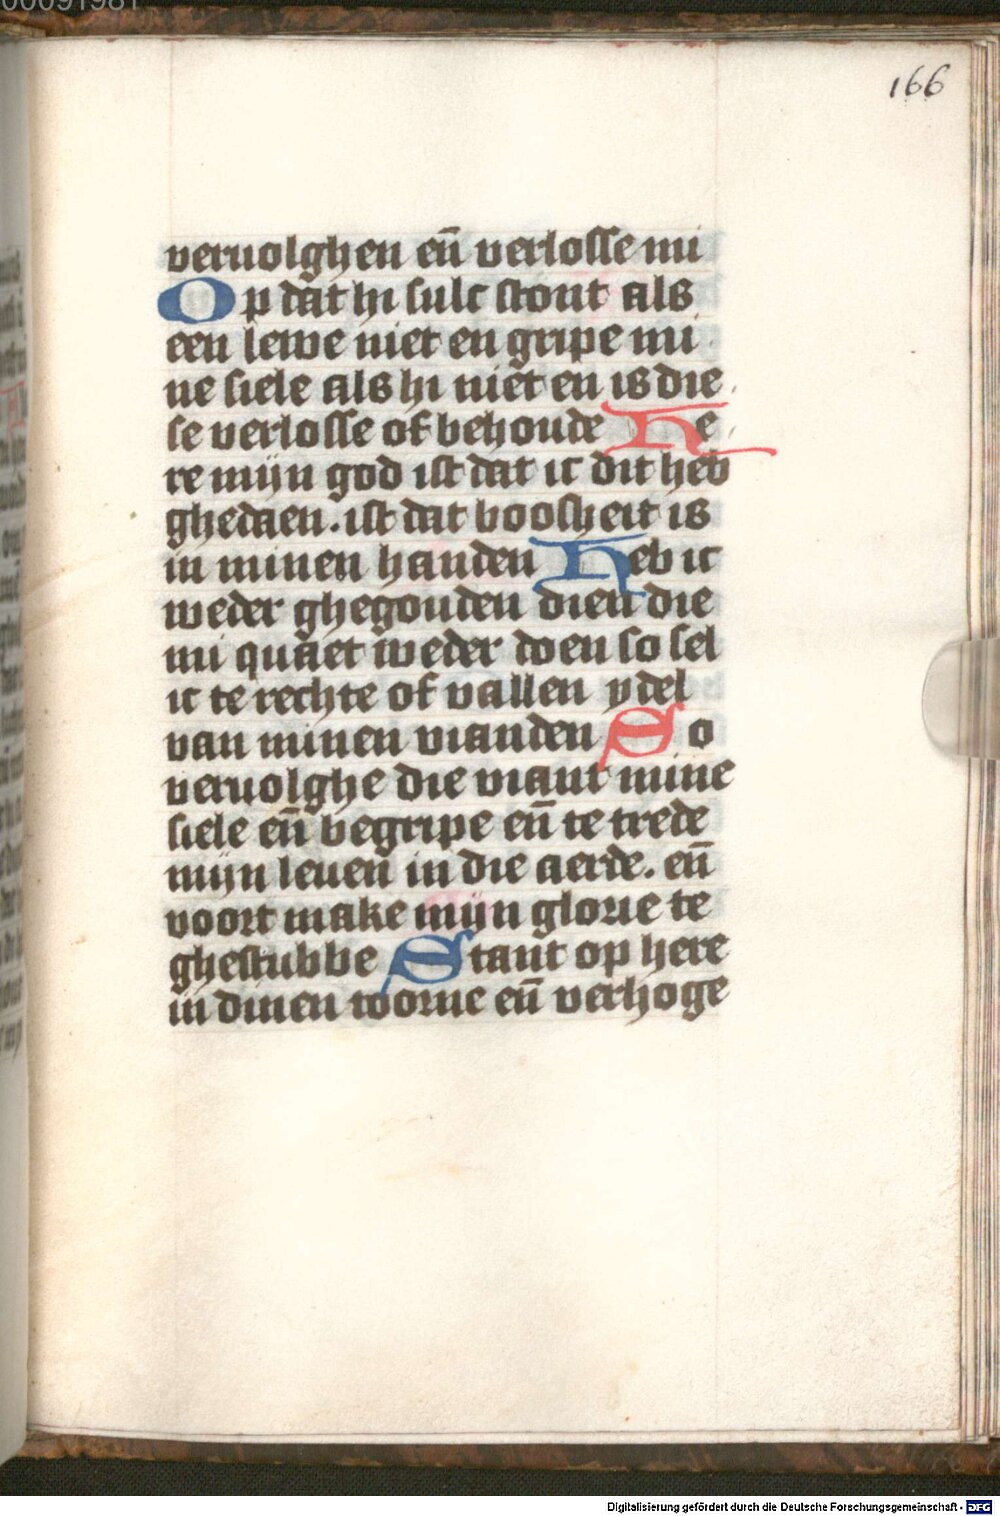 00091981
166
veruolghen en̄ verlosse mi
Op dat hi sulc stout als
een lewe niet en gripe mi
ne siele als hi niet en is die
se verlosse of behoude He
re mijn god ist dat ic dit heb
ghedaen. ist dat boosheit is
in minen handen Heb ic
weder ghegouden dien die
mi quaet weder doen so sel
ic te rechte of vallen ydel
van minen vianden So
veruolghe die viant mine
siele en̄ begripe en̄ te trede
mijn leuen in die aerde. en̄
voort make mijn glorie te
ghestubbe Stant op here
in dinen toorne en̄ verhoge
Digitalisierung gefördert durch die Deutsche Forschungsgemeinschaft - DFG